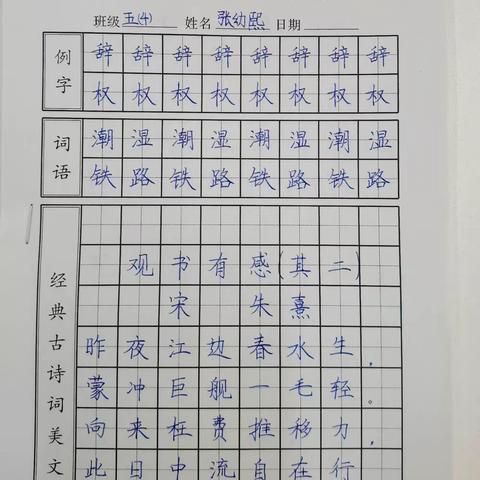 班级 五(4) 姓名 张幼熙 日期
例字
辞 辞 辞 辞 辞 辞 辞 辞
权 权 权 权 权 权 权 权
词语
潮 湿 潮 湿 潮 湿 潮 湿
铁 路 铁 路 铁 路 铁 路
经典古诗词美文
观书有感(其二)
宋 朱熹
昨夜江边春水生，
蒙冲巨舰一毛轻。
向来枉费推移力，
此日中流自在行